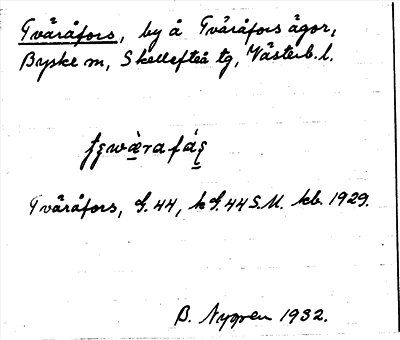 Tvåråfors, by å Tvåråfors ägor,
Byske m, Skellefteå tg, Västerb. l.
Tvåråfors, G. 44, k G. 44 S.M. kb. 1929.
B. Nygren 1932.